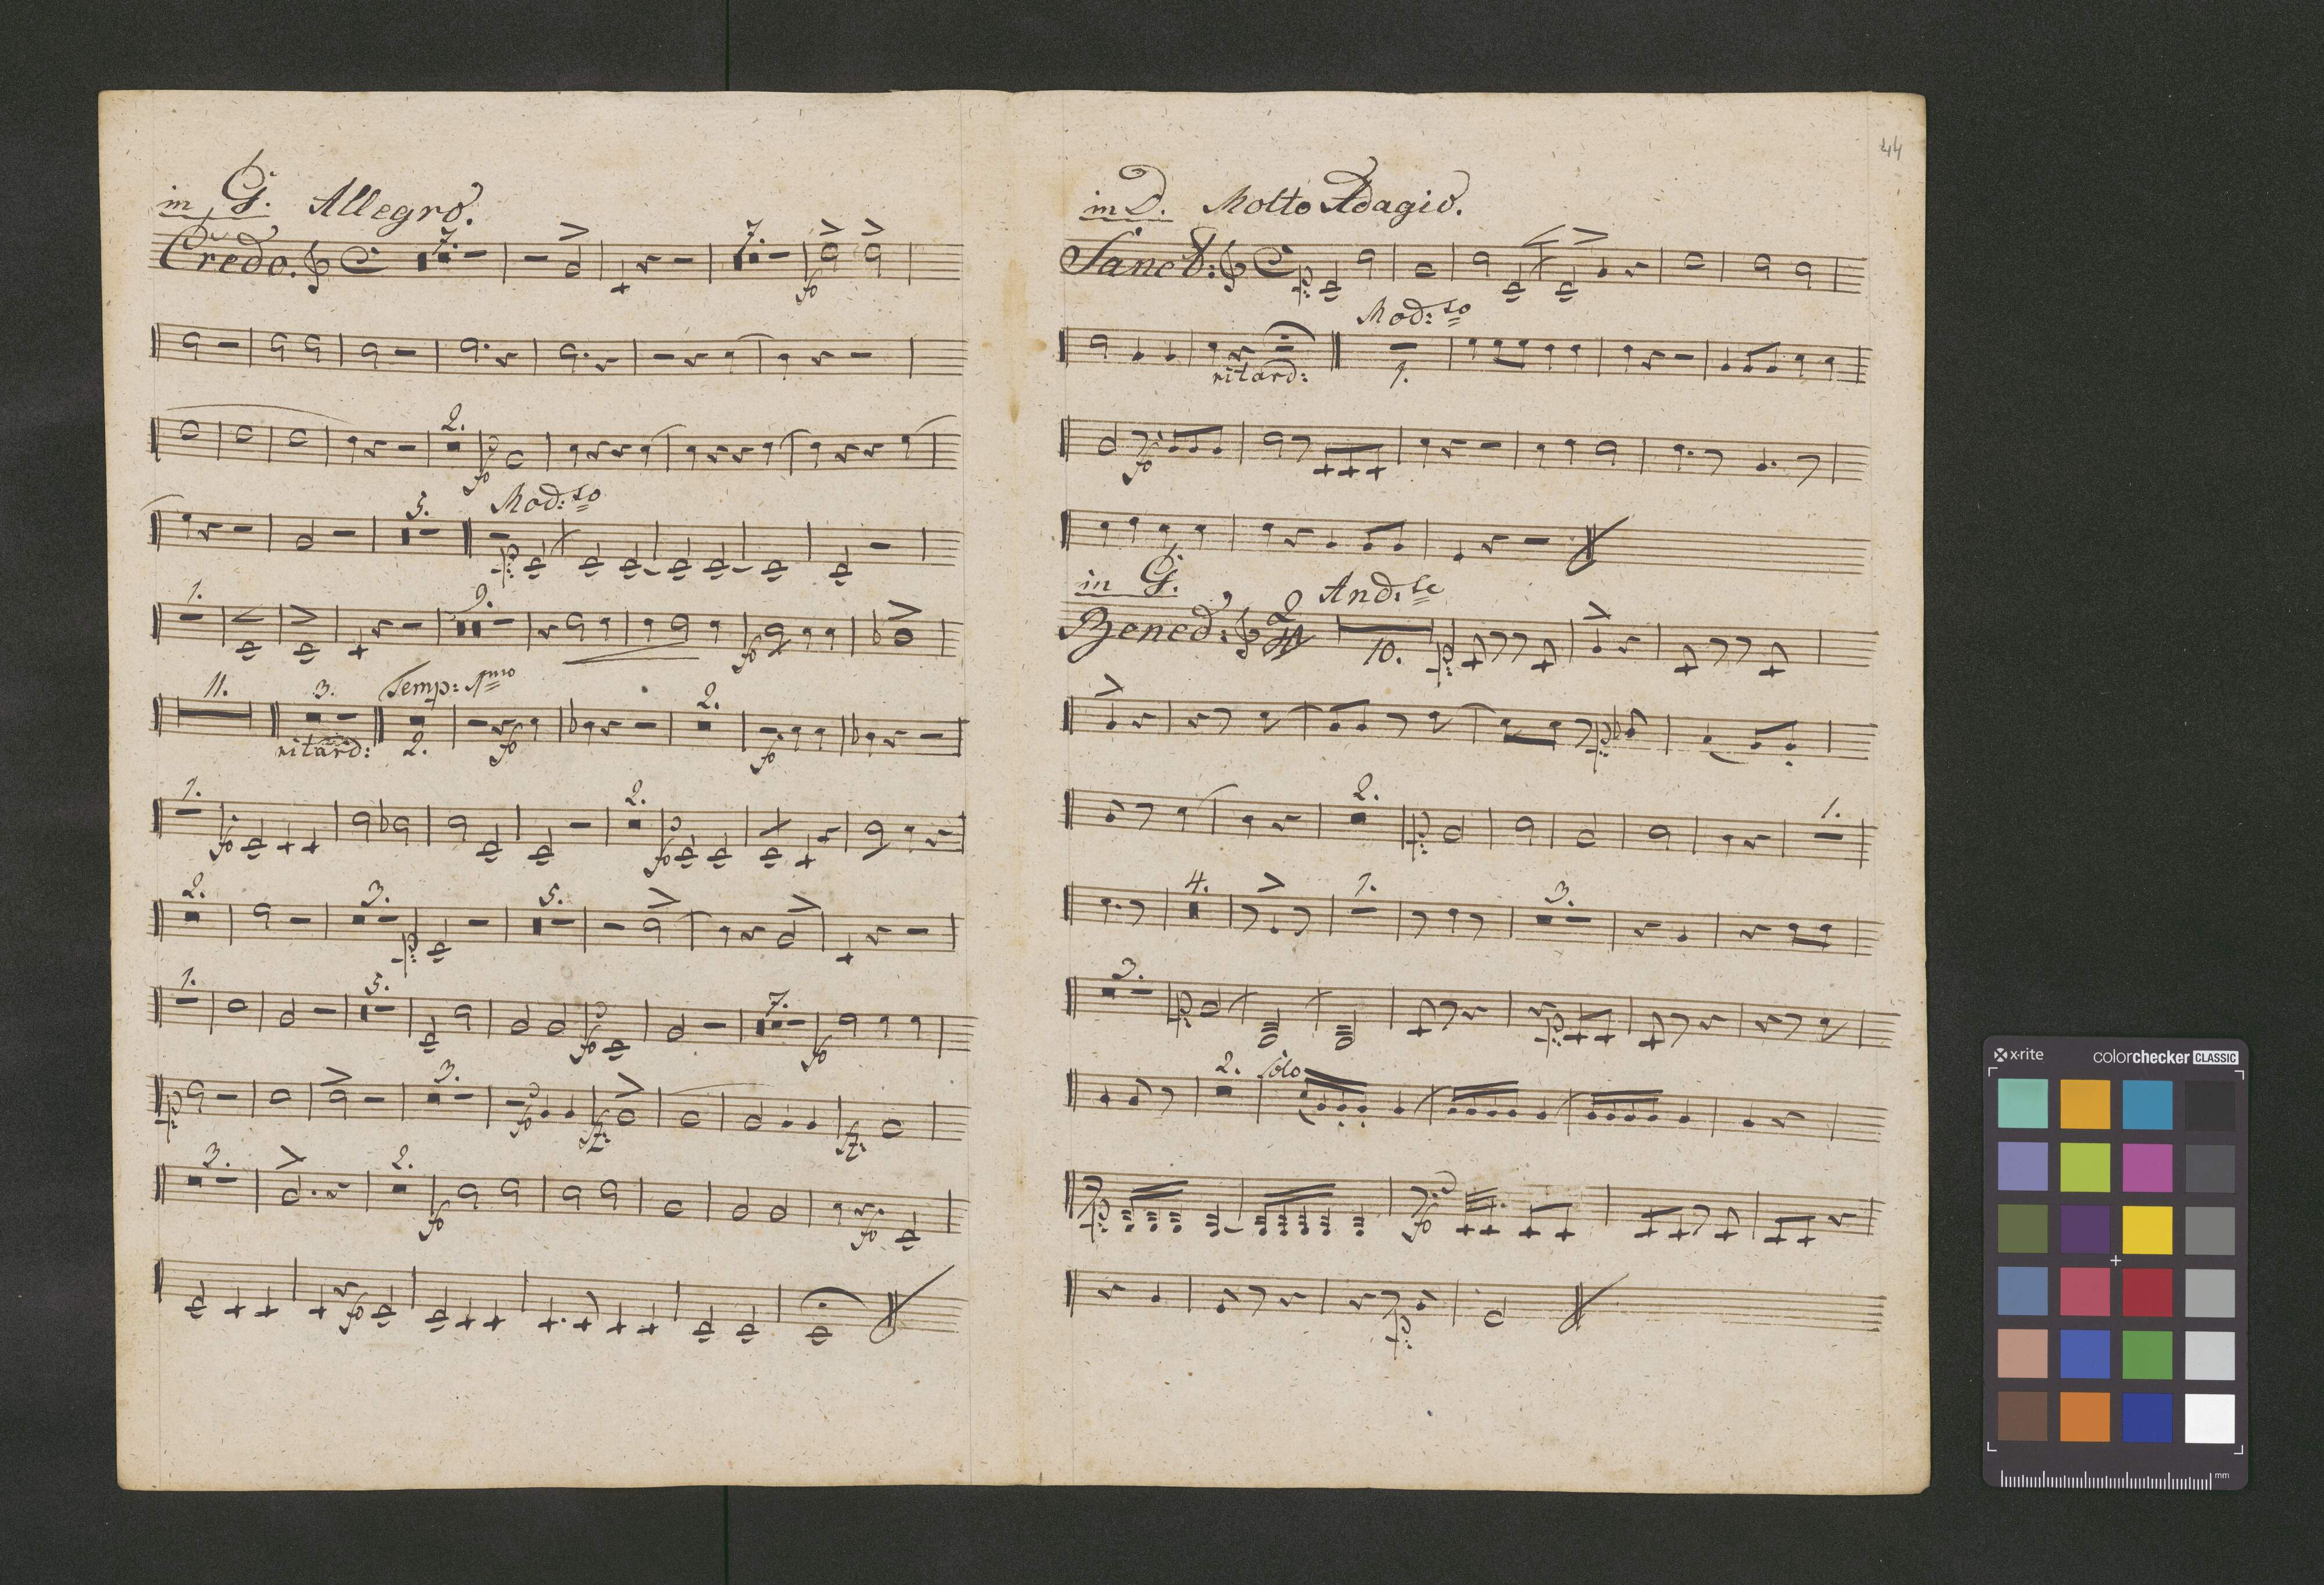 in G. Allegro.
Credo. 7. 7. fo
2. fo
5. Mod:to p:
1. 9. fo
11. 3. Temp: 1mo 2.
ritard: 2. fo fo
1. 2. fo fo
2. 3. 5. p:
1. 5. 7. fo fo
3. p: fo fz: fz:
3. 2. fo fo
fo
44
in D. Molto Adagio.
Sanct: p:
Mod:to
ritard: 1.
fo
in G. And:te
Bened: 2 10. p:
p:
2. 1. p:
4. 1. 3.
3. p: p:
2. Solo
p: fo
p:
x·rite colorchecker CLASSIC
mm